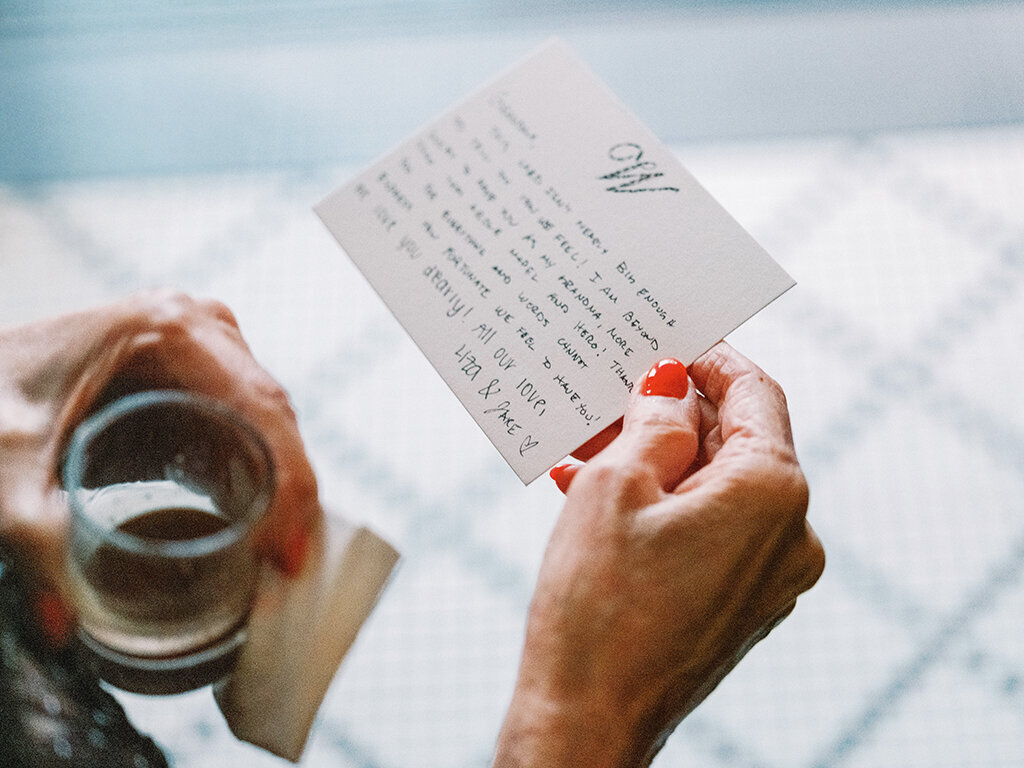 W
THIS CARD ISN'T NEARLY BIG ENOUGH
TO TELL YOU HOW WE FEEL! I AM BEYOND
TO HAVE YOU AS MY GRANDMA, MORE
ROLE MODEL AND HERO! THANK
FOR EVERYTHING AND WORDS CANNOT
EXPRESS HOW FORTUNATE WE FEEL TO HAVE YOU!
WE love you dearly! All our love,
Liza & JAKE ♡